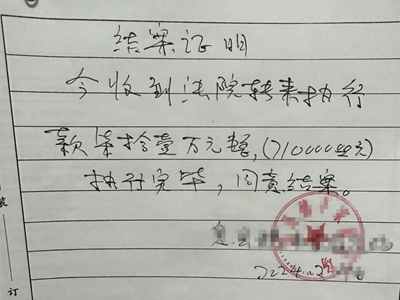 结案证明
今收到法院转来执行
款柒拾壹万元整,(710000元)
执行完毕,同意结案。
2024.2
装
订